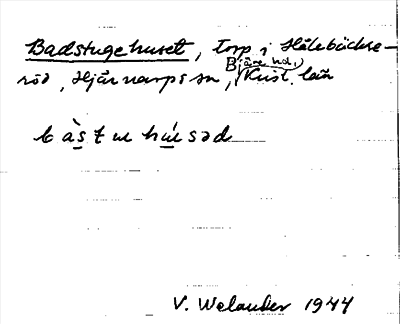 Badstugehuset, torp i Hålebäckse-
röd, Hjärnarps sn, Bjäre hd., Krist. län
bàstuhúsəd
V. Welander 1944